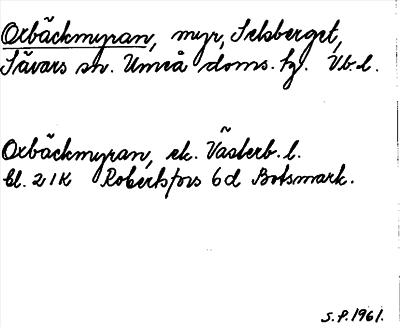 Oxbäckmyran, myr, Selsberget,
Sävars sn. Umeå doms. tg. Vb. l.
Oxbäckmyran, ek. Västerb. l.
bl. 21K Robertsfors 6d Botsmark.
S.P. 1961.